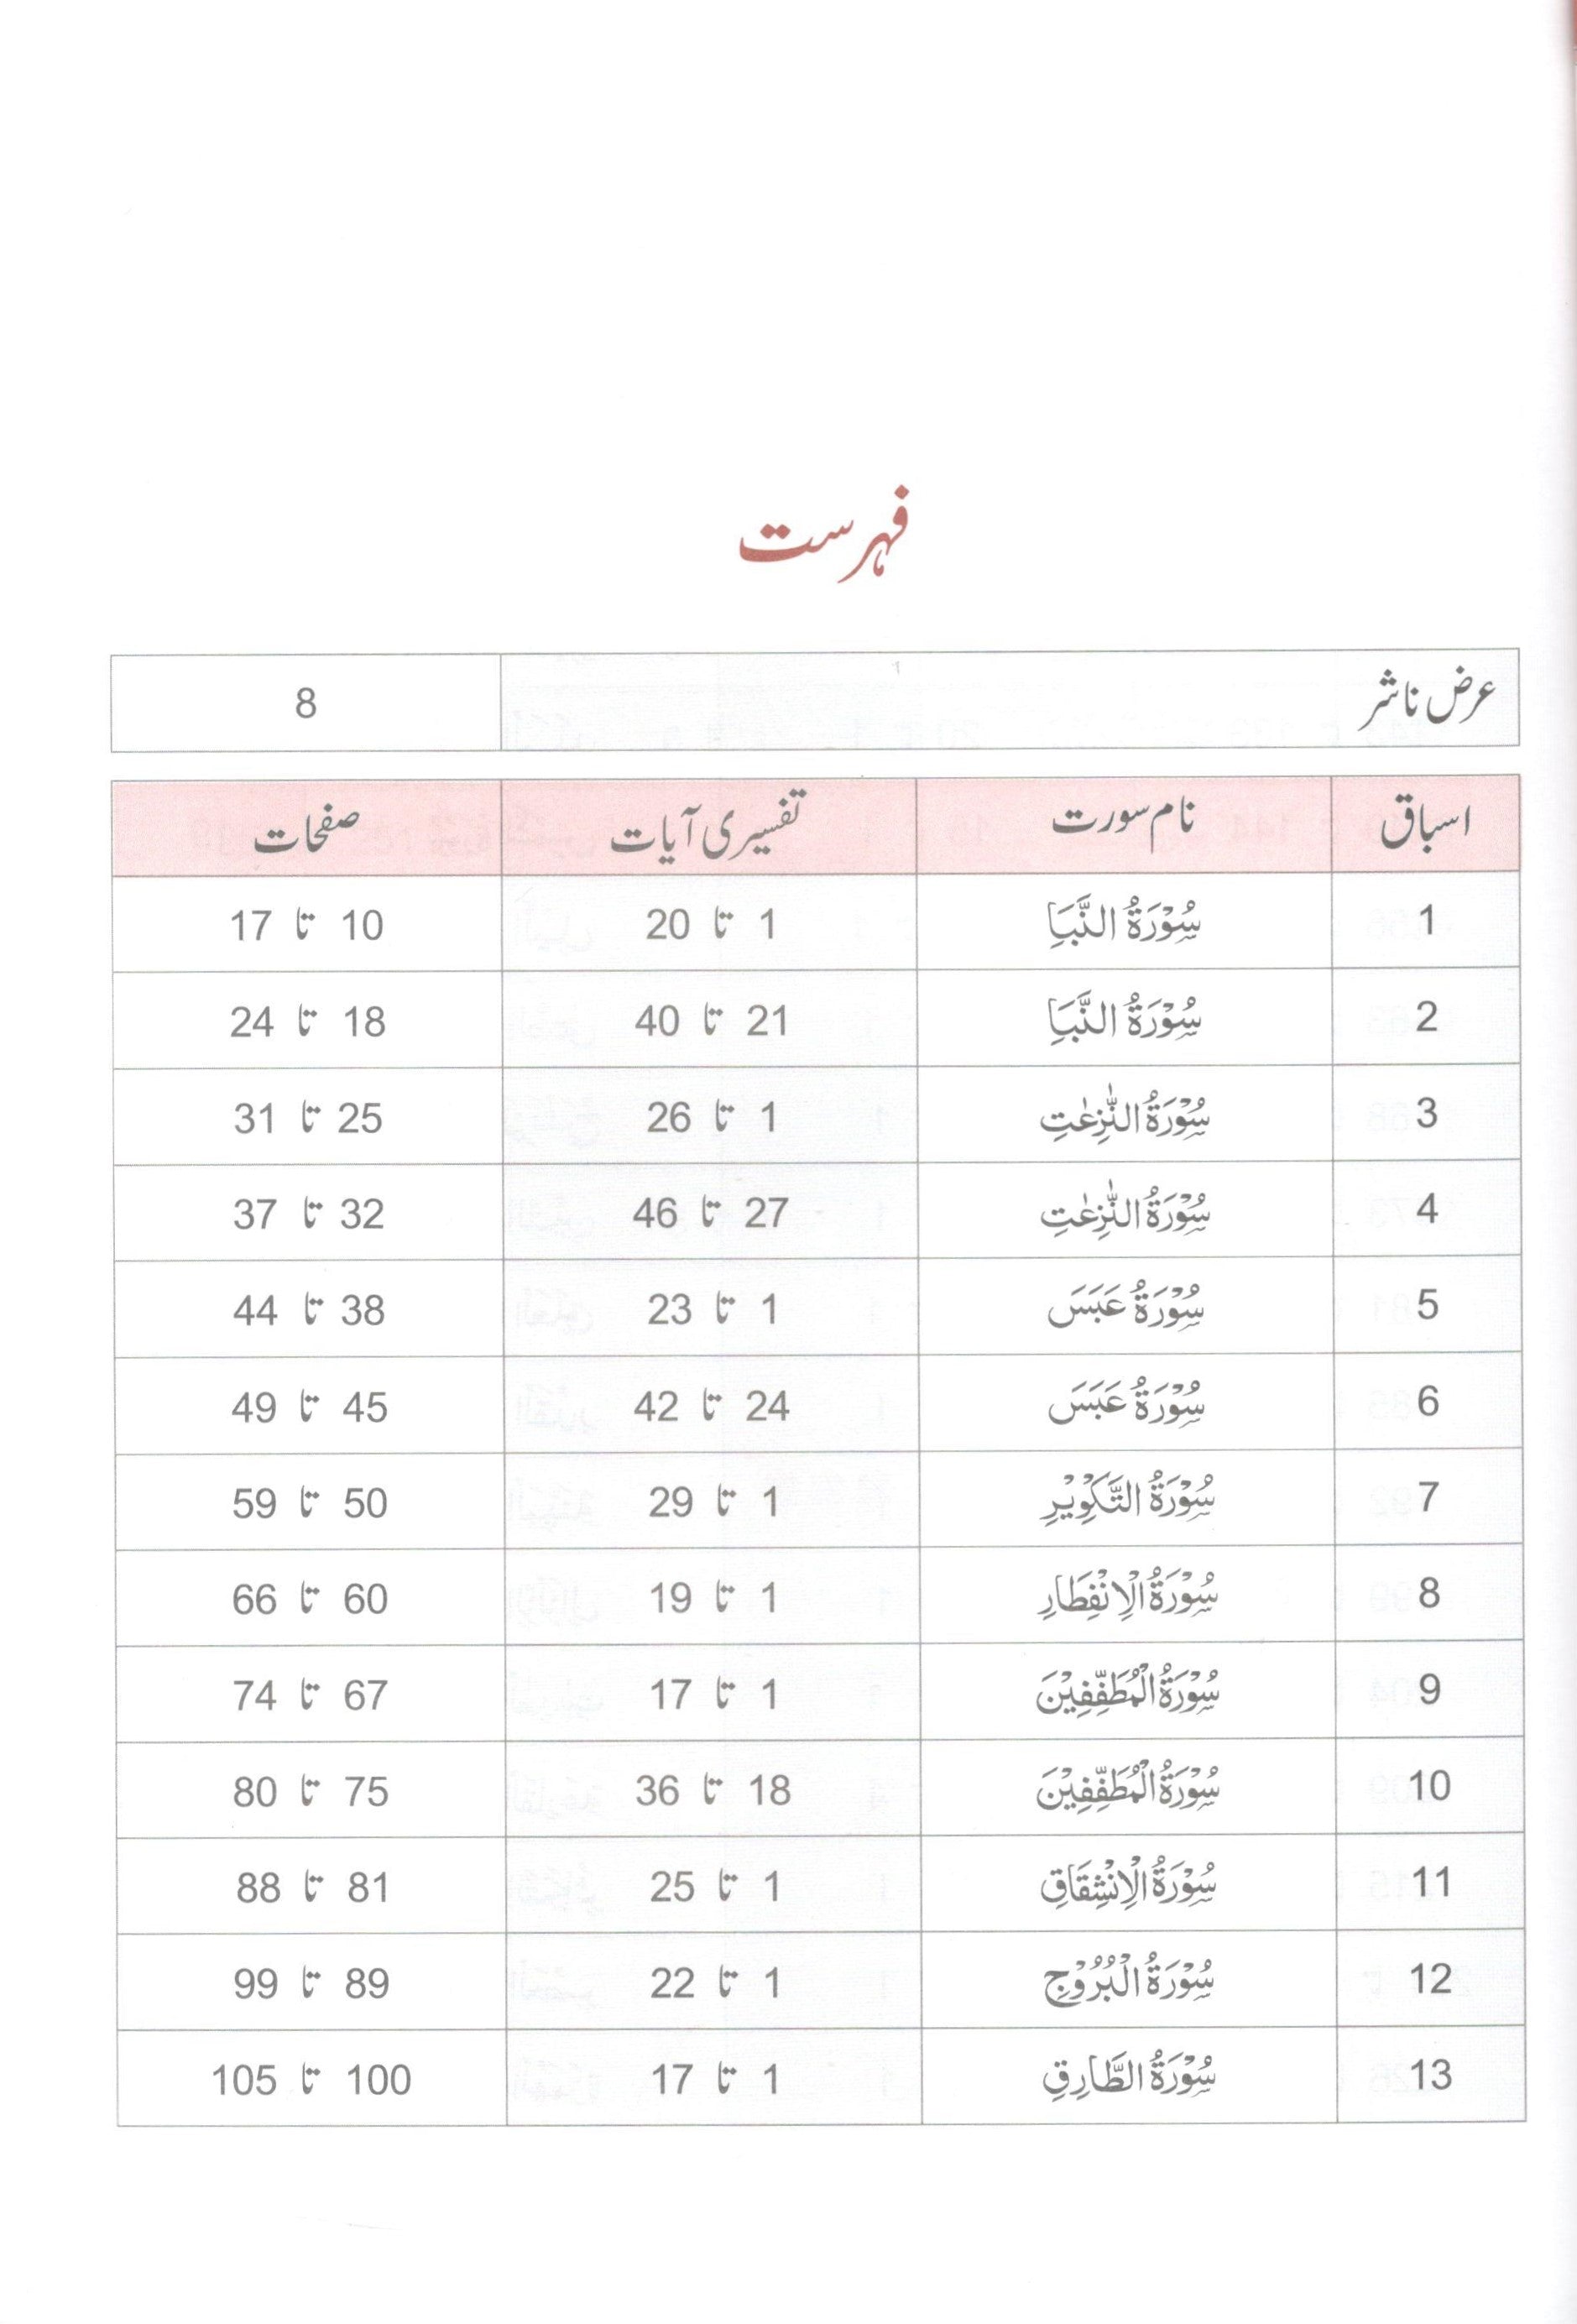 فہرست
عرض ناشر 8
اسباق نام سورت تفسیری آیات صفحات
1 سُوْرَةُ النَّبَاِ 1 تا 20 10 تا 17
2 سُوْرَةُ النَّبَاِ 21 تا 40 18 تا 24
3 سُوْرَةُ النّٰزِعٰتِ 1 تا 26 25 تا 31
4 سُوْرَةُ النّٰزِعٰتِ 27 تا 46 32 تا 37
5 سُوْرَةُ عَبَسَ 1 تا 23 38 تا 44
6 سُوْرَةُ عَبَسَ 24 تا 42 45 تا 49
7 سُوْرَةُ التَّكْوِيْرِ 1 تا 29 50 تا 59
8 سُوْرَةُ الْاِنْفِطَارِ 1 تا 19 60 تا 66
9 سُوْرَةُ الْمُطَفِّفِيْنَ 1 تا 17 67 تا 74
10 سُوْرَةُ الْمُطَفِّفِيْنَ 18 تا 36 75 تا 80
11 سُوْرَةُ الْاِنْشِقَاقِ 1 تا 25 81 تا 88
12 سُوْرَةُ الْبُرُوْجِ 1 تا 22 89 تا 99
13 سُوْرَةُ الطَّارِقِ 1 تا 17 100 تا 105